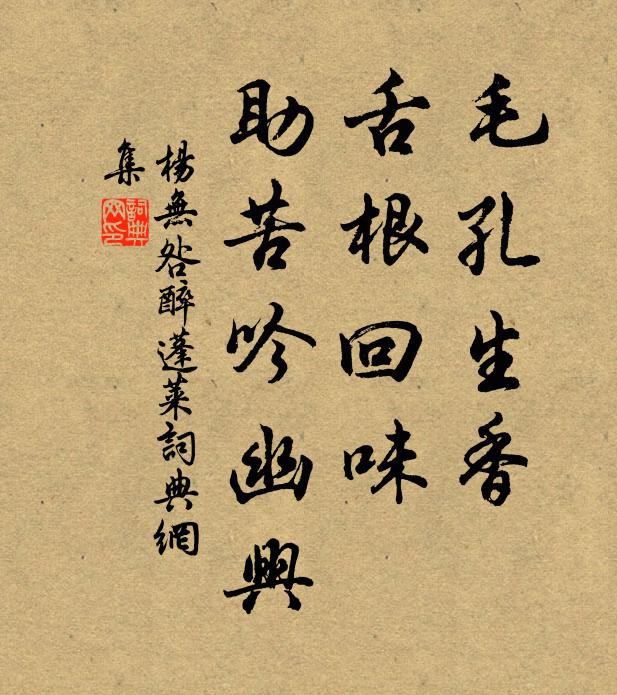 毛孔生香
舌根回味
助苦吟幽興
楊無咎醉蓬萊詞典網
集
詞典
网印